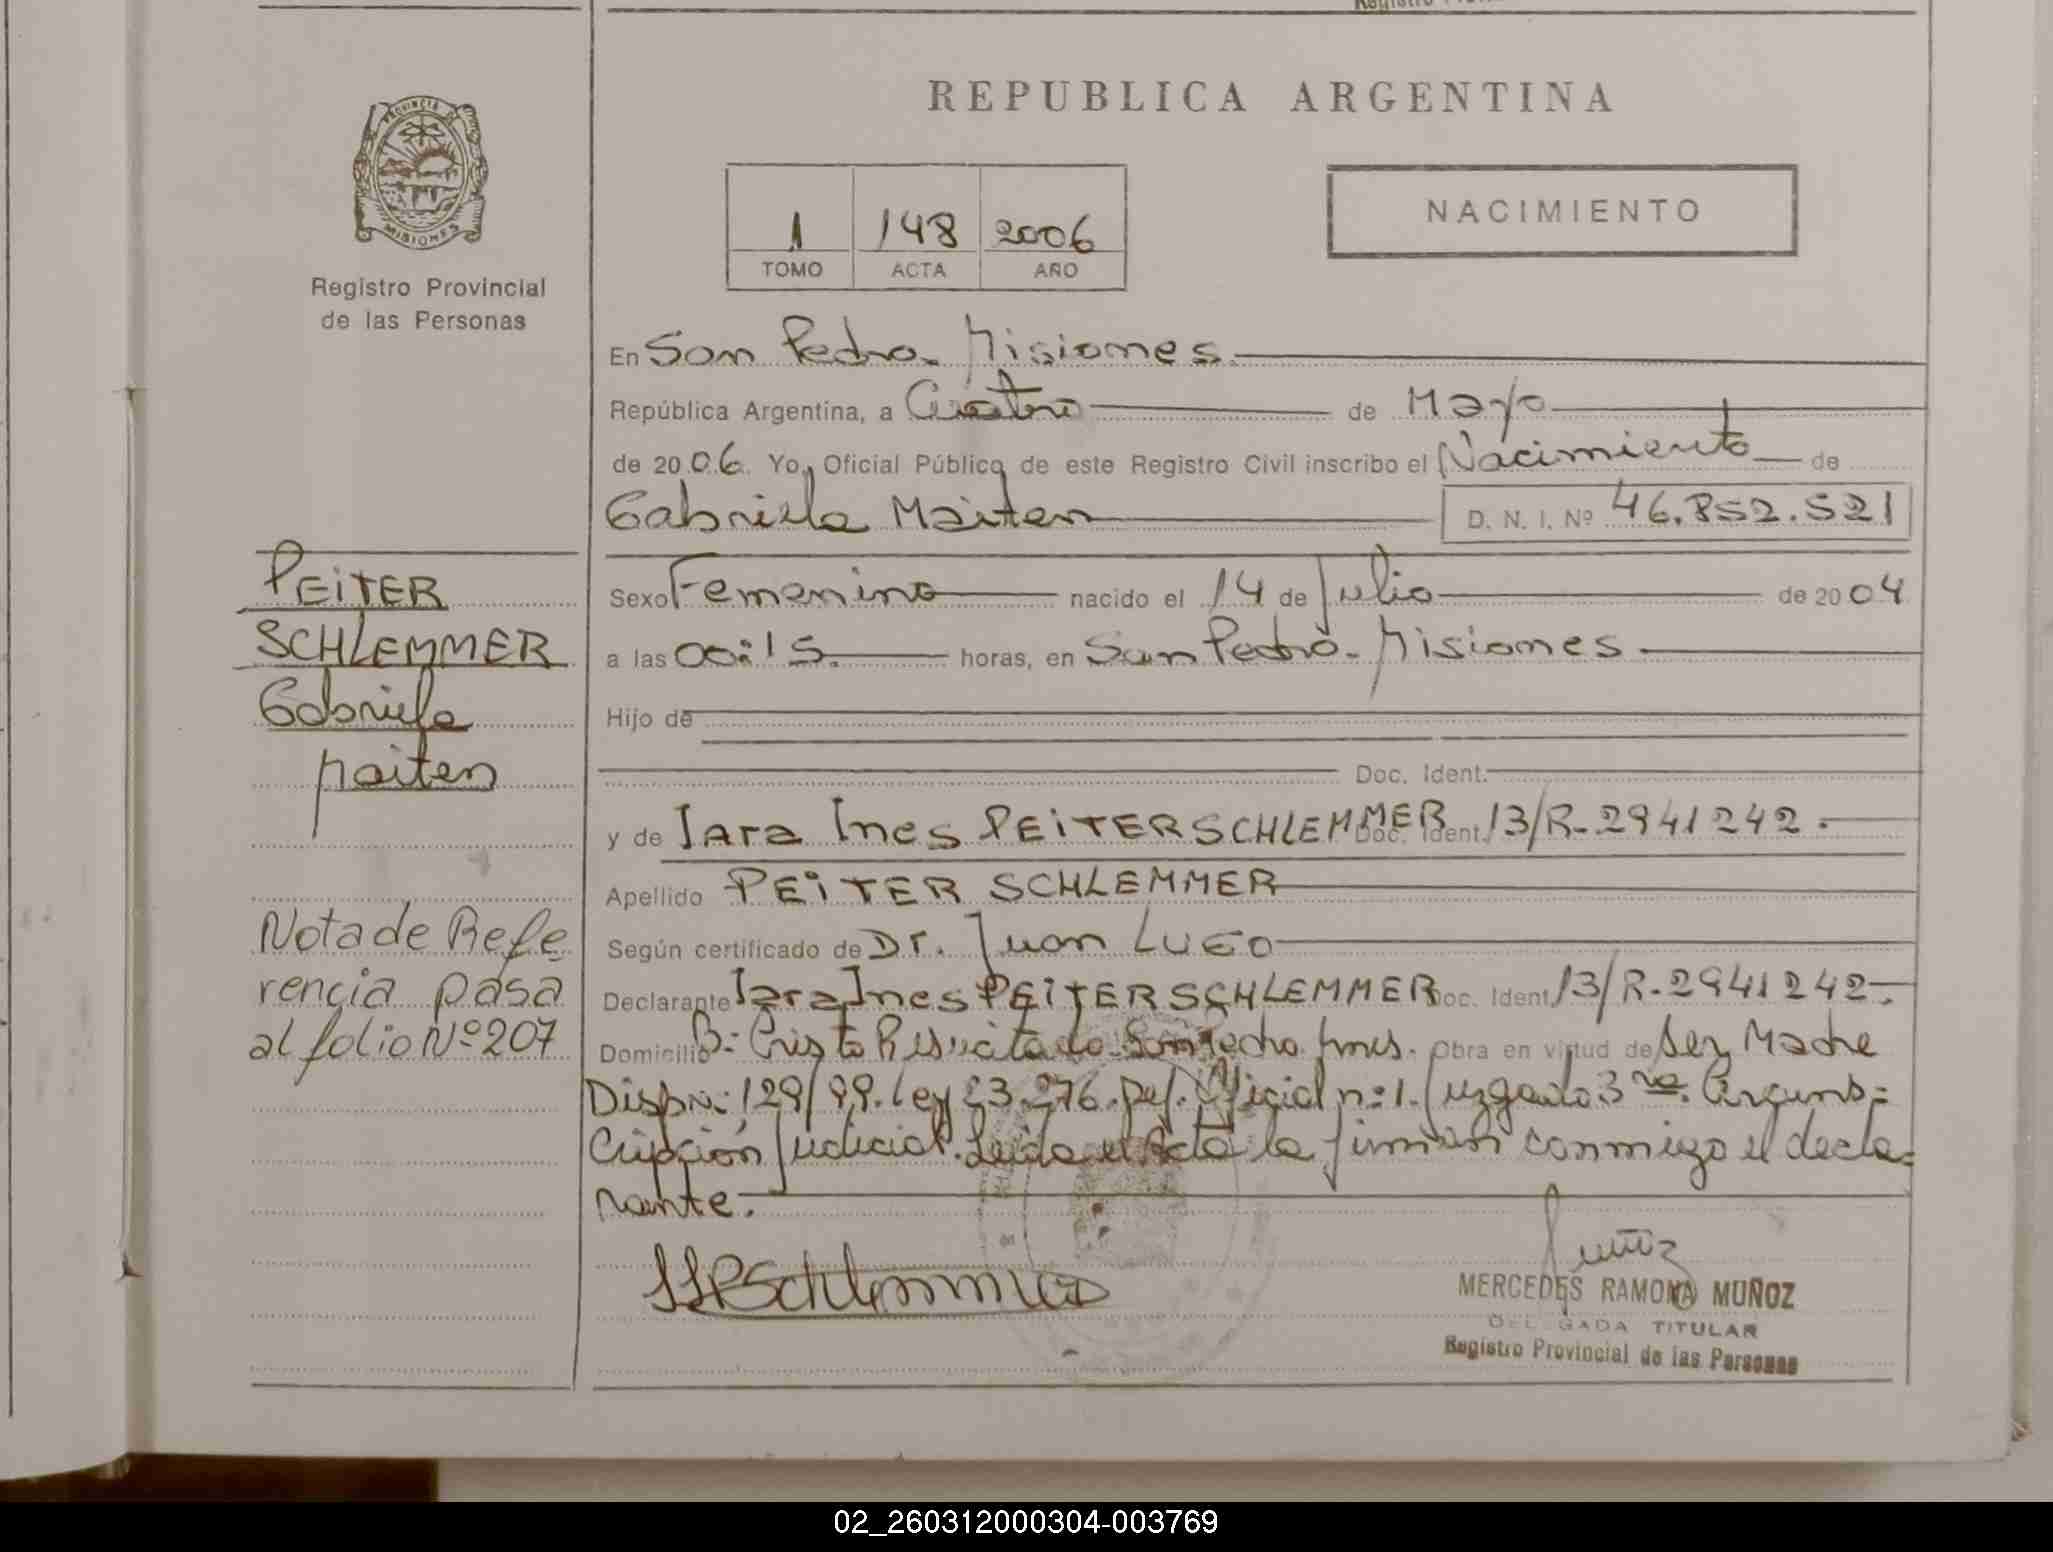 REPUBLICA ARGENTINA
PROVINCIA DE
MISIONES
Registro Provincial
de las Personas
1 148 2006
TOMO ACTA AÑO
NACIMIENTO
En San Pedro. Misiones.
República Argentina, a Cuatro de Mayo
de 2006. Yo, Oficial Público de este Registro Civil inscribo el Nacimiento de
Gabriela Maiten D. N. I. Nº 46.852.521
Sexo Femenino nacido el 14 de Julio de 2004
a las 00:15. horas, en San Pedro. Misiones
Hijo de
Doc. Ident.
y de Iara Ines PEiTER SCHLEMMER Doc. Ident. 13/R-2941242.
Apellido PEiTER SCHLEMMER
Según certificado de Dr. Juan LUGO
Declarante Iara Ines PEiTER SCHLEMMER Doc. Ident 13/R-2941242.
Domicilio B: Cristo Resucitado San Pedro Mnes. Obra en virtud de Ser Madre
Dispn: 129/99. Ley 23.276. Def. Oficial nº 1. Juzgado 3ra. Circuns=
cripción Judicial. Leida el Acta la firman conmigo el decla=
rante.
PEiTER
SCHLEMMER
Gabriela
Maiten
Nota de Refe
rencia pasa
al folio Nº 207
Schlemmer
Muñoz
MERCEDES RAMONA MUÑOZ
DELEGADA TITULAR
Registro Provincial de las Personas
02_260312000304-003769